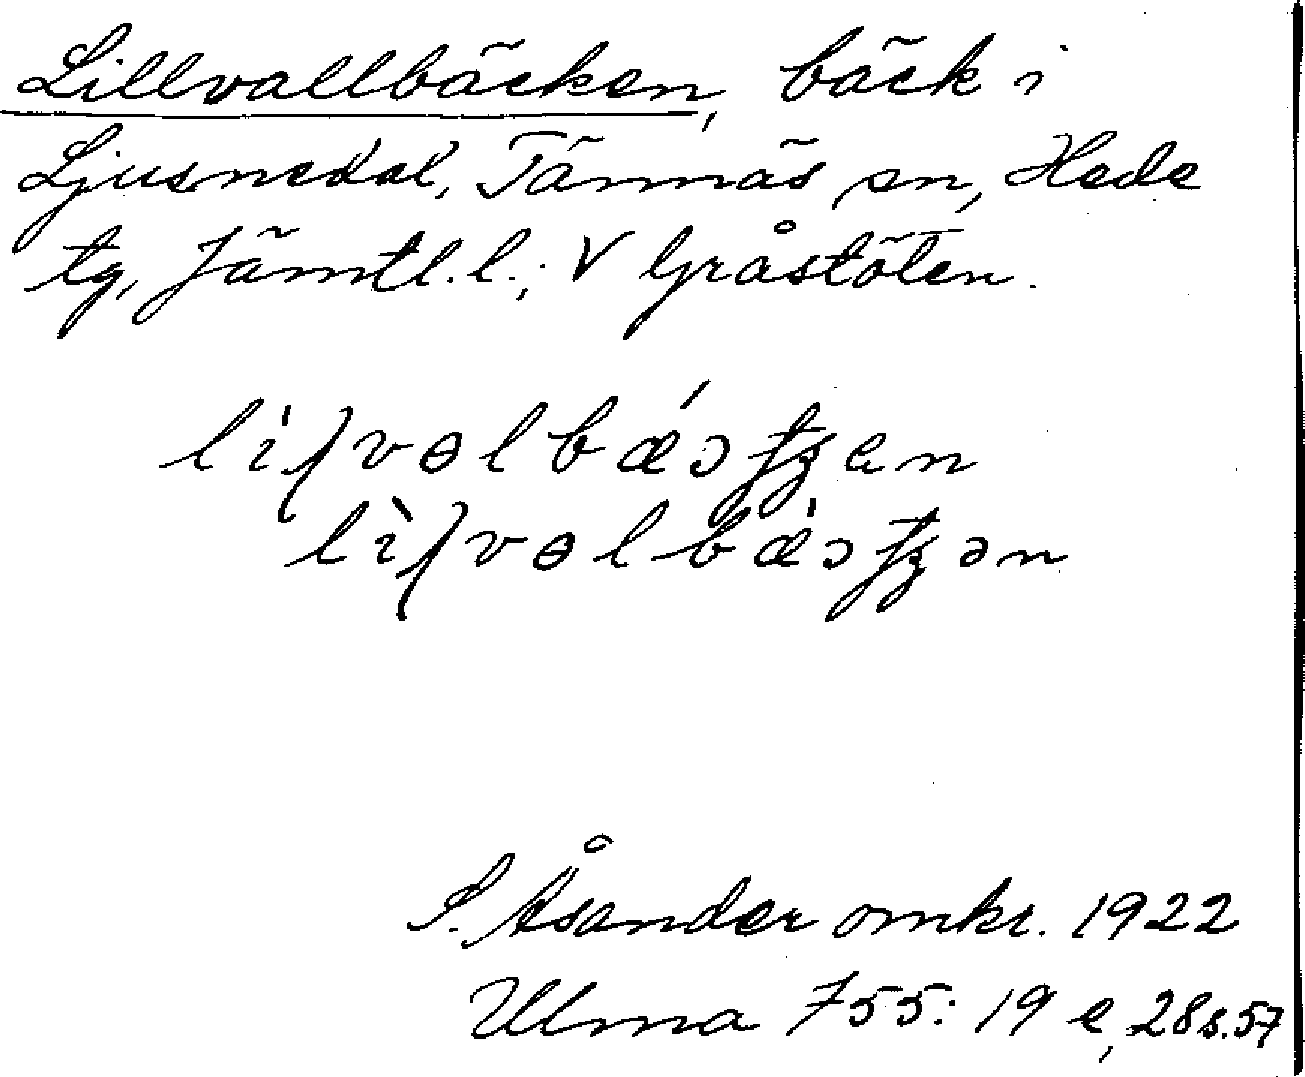 Lillvallbäcken, bäck i
Ljusnedal, Tännäs sn, Hede
tg, Jämtl. l.; V Gråstöten.
S. Åsander omkr. 1922
Ulma 755: 19 e, 28 s. 57